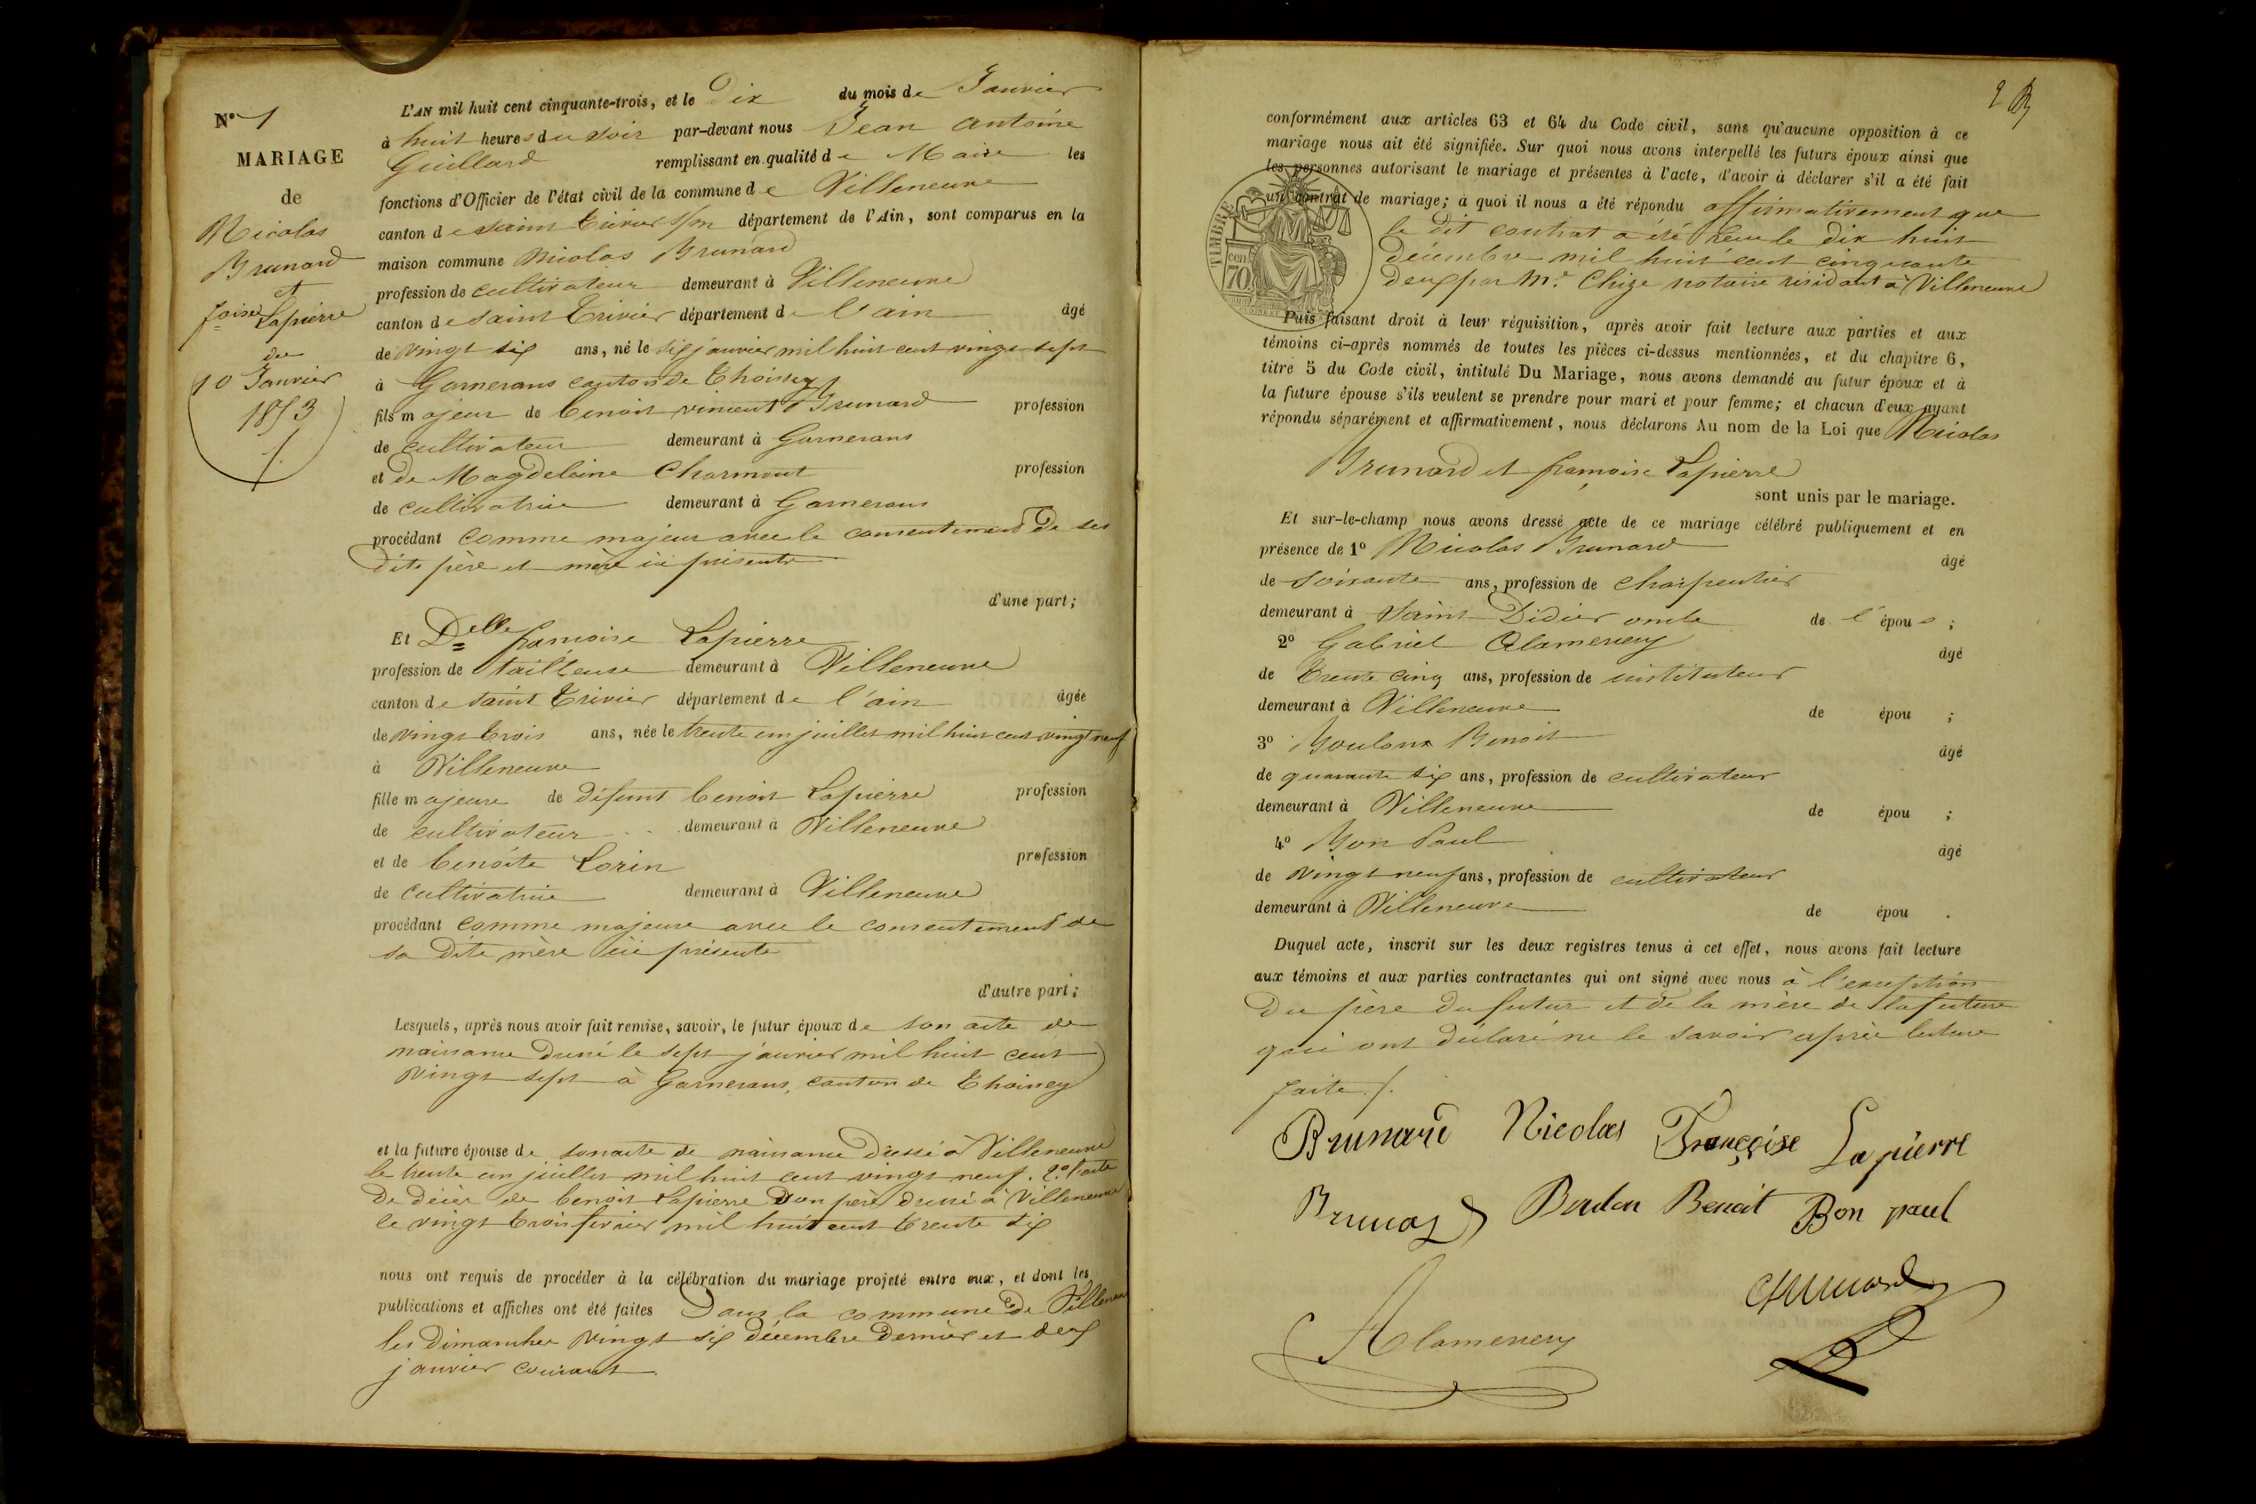 N° 1
MARIAGE
de
Nicolas
Brunard
et
foise Lapierre
du
10 Janvier
1853
L'AN mil huit cent cinquante-trois, et le Dix du mois de Janvier
à huit heures du soir par-devant nous Jean Antoine
Guillard remplissant en qualité de Maire les
fonctions d'Officier de l'état civil de la commune de Villeneuve
canton de saint Trivier s/m département de l'Ain, sont comparus en la
maison commune Nicolas Brunard
profession de cultivateur demeurant à Villeneuve
canton de saint Trivier département de l'ain âgé
de vingt six ans, né le six janvier mil huit cent vingt sept
à Garnerans canton de Thoissey
fils majeur de benoit vincent Brunard profession
de cultivateur demeurant à Garnerans
et de Magdelaine Charmont profession
de cultivatrice demeurant à Garnerans
procédant comme majeur avec le consentement De ses
dits père et mère ici présents
d'une part;
Et Delle françoise Lapierre
profession de tailleuse demeurant à Villeneuve
canton de saint Trivier département de l'ain âgée
de vingt trois ans, née le trente un juillet mil huit cent vingt neuf
à Villeneuve
fille majeure de défunt benoit Lapierre profession
de cultivateur demeurant à Villeneuve
et de benoite Lorin profession
de cultivatrice demeurant à Villeneuve
procédant comme majeure avec le consentement de
sa dite mère ici présente
d'autre part;
Lesquels, après nous avoir fait remise, savoir, le futur époux de son acte de
naissance Dressé le sept janvier mil huit cent
vingt sept à Garnerans, canton de Thoissey
et la future épouse de son acte de naissance Dressé à Villeneuve
le trente un juillet mil huit cent vingt neuf. 2° l'acte
De décès de benoit Lapierre son père dressé à Villeneuve
le vingt trois fevrier mil huit cent trente six
nous ont requis de procéder à la célébration du mariage projeté entre eux, et dont les
publications et affiches ont été faites Dans la commune de Villeneuve
les Dimanches vingt six décembre Dernier et deux
janvier courant
2
conformément aux articles 63 et 64 du Code civil, sans qu'aucune opposition à ce
mariage nous ait été signifiée. Sur quoi nous avons interpellé les futurs époux ainsi que
les personnes autorisant le mariage et présentes à l'acte, d'avoir à déclarer s'il a été fait
un contrat de mariage; à quoi il nous a été répondu affirmativement que
le dit contrat a été reçu le dix huit
décembre mil huit cent cinquante
deux par Me Chize notaire résidant à Villeneuve
TIMBRE
cen
70
Puis faisant droit à leur réquisition, après avoir fait lecture aux parties et aux
témoins ci-après nommés de toutes les pièces ci-dessus mentionnées, et du chapitre 6,
titre 5 du Code civil, intitulé Du Mariage, nous avons demandé au futur époux et à
la future épouse s'ils veulent se prendre pour mari et pour femme; et chacun d'eux ayant
répondu séparément et affirmativement, nous déclarons Au nom de la Loi que Nicolas
Brunard et françoise Lapierre
sont unis par le mariage.
Et sur-le-champ nous avons dressé acte de ce mariage célébré publiquement et en
présence de 1° Nicolas Brunard âgé
de soixante ans, profession de charpentier
demeurant à Saint Didier oncle de l'épou ;
2° Gabriel Alamercery âgé
de trente cinq ans, profession de instituteur
demeurant à Villeneuve de épou ;
3° Boulon Benoit âgé
de quarante six ans, profession de cultivateur
demeurant à Villeneuve de épou ;
4° Bon Paul âgé
de vingt neuf ans, profession de cultivateur
demeurant à Villeneuve de épou .
Duquel acte, inscrit sur les deux registres tenus à cet effet, nous avons fait lecture
aux témoins et aux parties contractantes qui ont signé avec nous à l'exception
Du père Du futur et de la mère de la future
qui ont déclaré ne le savoir après lecture
faite /.
Brunard Nicolas Françoise Lapierre
Boulon Benoit Bon paul
Alamercery